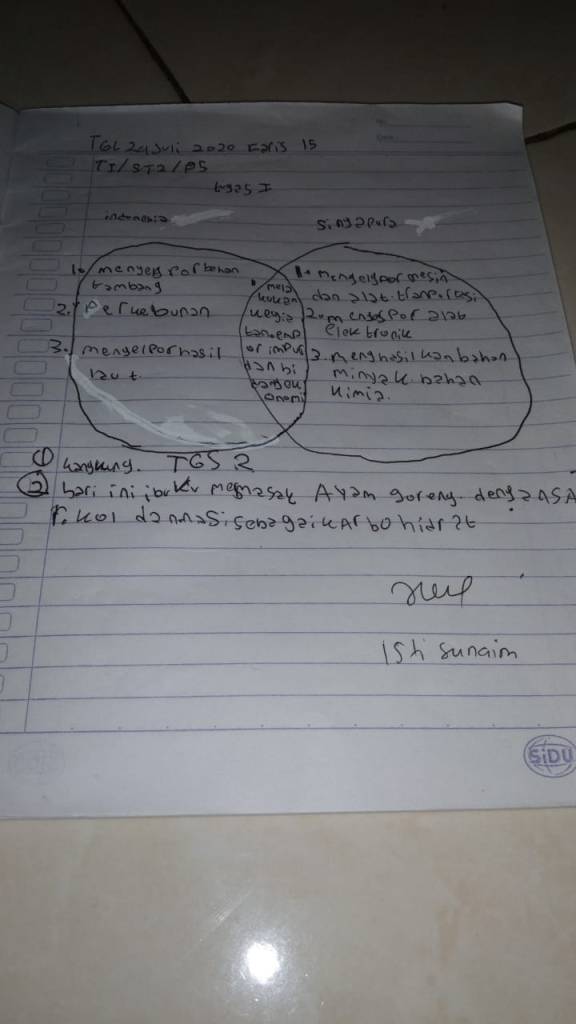 TGL 24 juli 2020 Faris 15
T1/ST2/P5
tugas I
indonesia
Singapura
1. mengekspor bahan
tambang
2. Perkebunan
3. mengekspor hasil
laut.
mela
kukan
kegia
tan
or impor
dan bi
ekonomi
1. mengekspor mesin
dan alat tranportasi
2. mengekspor alat
elektronik
3. menghasilkan bahan
minyak bahan
kimia.
① kangkung. TGS 2
② hari ini ibuku memasak Ayam goreng dengan SA
r. kol dan nasi sebagai karbohidrat
Isti sunaim
SiDU